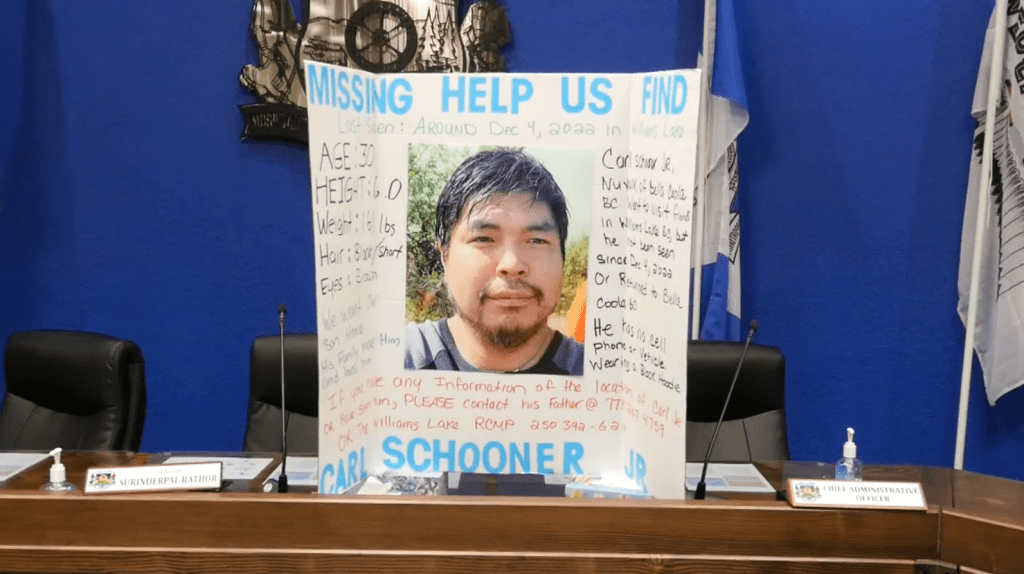 MISSING HELP US FIND
Last Seen: AROUND Dec 4, 2022 in Williams Lake
AGE: 30
HEIGHT: 6.0
Weight: 161 lbs
Hair: Black/short
Eyes: Brown
We Want Our
son Home
His Family Him
and loves him
Carl Schooner Jr,
Nuxalk of Bella Coola
BC Went to visit friends
in Williams Lake BC, but
he not been seen
since Dec 4, 2022
Or Returned to Bella
Coola bc
He has no cell
phone or vehicle.
Wearing a Black Hoodie
If you have any Information of the location of Carl Jr
or have seen him, PLEASE contact his Father @
OR The Williams Lake RCMP 250 392-
CARL SCHOONER JR
SURINDERPAL RATHOR
CHIEF ADMINISTRATIVE
OFFICER